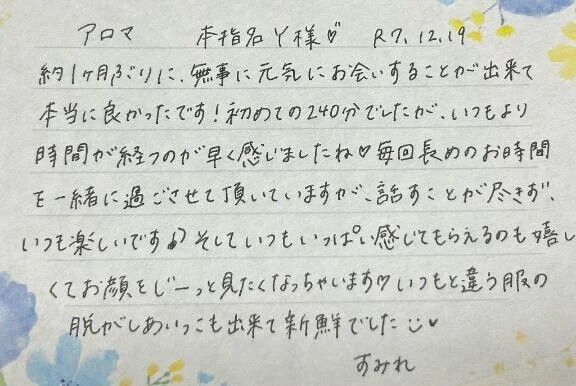 アロマ 本指名 Y様♡ R7.12.19
約1ヶ月ぶりに、無事に元気にお会いすることが出来て
本当に良かったです！初めての240分でしたが、いつもより
時間が経つのが早く感じましたね♡毎回長めのお時間
を一緒に過ごさせて頂いていますが、話すことが尽きず、
いつも楽しいです♪そしていつもいっぱい感じてもらえるのも嬉し
くてお顔をじーっと見たくなっちゃいます♡いつもと違う服の
脱がしあいっこも出来て新鮮でした☺♥
すみれ